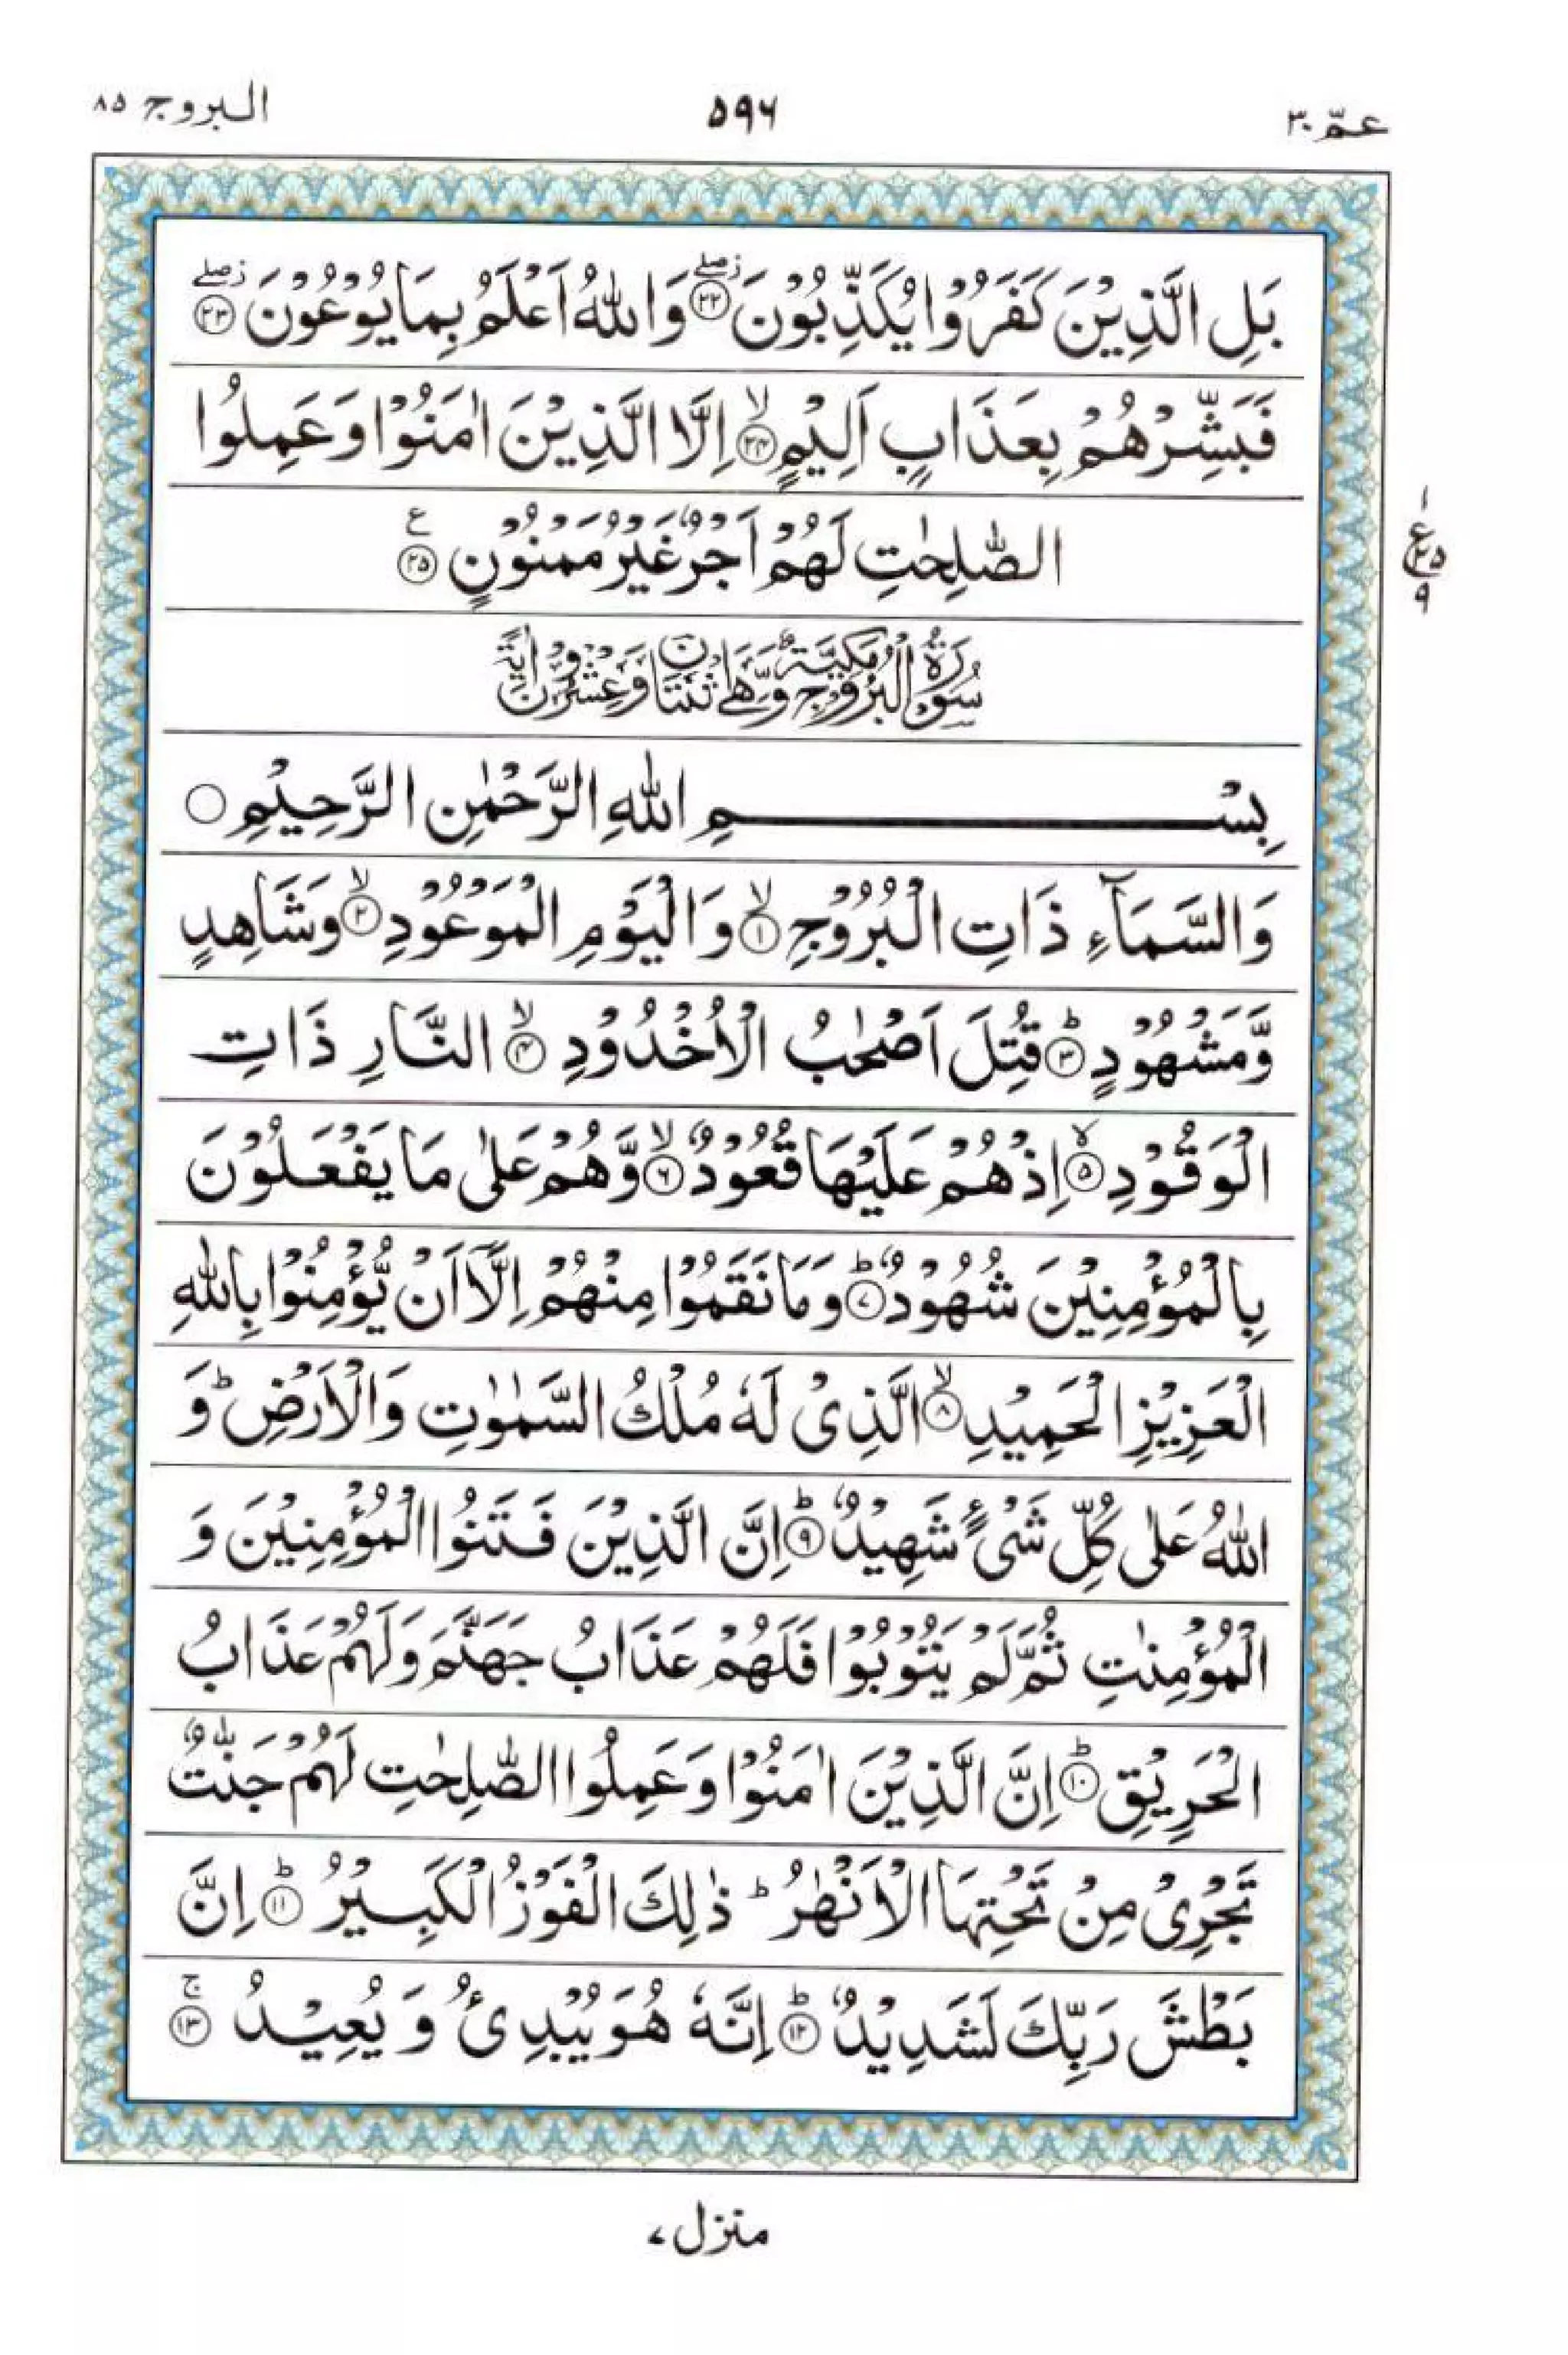 عمّ ۳۰ ۵۹۶ البروج ۸۵
بَلِ الَّذِيْنَ كَفَرُوْا يُكَذِّبُوْنَ ۟ۖز ﴿۲۲﴾ وَاللّٰهُ اَعْلَمُ بِمَا يُوْعُوْنَ ۟ۖز ﴿۲۳﴾
فَبَشِّرْهُمْ بِعَذَابٍ اَلِيْمٍ ۙ﴿۲۴﴾ اِلَّا الَّذِيْنَ اٰمَنُوْا وَعَمِلُوا
الصّٰلِحٰتِ لَهُمْ اَجْرٌ غَيْرُ مَمْنُوْنٍ ﴿۲۵﴾ ع
ع ۱ ۲۵ ۹
سُوْرَةُ الْبُرُوْجِ مَكِّيَّةٌ وَّهِىَ ثِنْتَانِ وَعِشْرُوْنَ اٰيَةً
بِسْـــــمِ اللّٰهِ الرَّحْمٰنِ الرَّحِيْمِ ○
وَالسَّمَآءِ ذَاتِ الْبُرُوْجِ ۙ﴿۱﴾ وَالْيَوْمِ الْمَوْعُوْدِ ۙ﴿۲﴾ وَشَاهِدٍ
وَّمَشْهُوْدٍ ؕ﴿۳﴾ قُتِلَ اَصْحٰبُ الْاُخْدُوْدِ ۙ﴿۴﴾ النَّارِ ذَاتِ
الْوَقُوْدِ ۙ﴿۵﴾ اِذْ هُمْ عَلَيْهَا قُعُوْدٌ ۙ﴿۶﴾ وَّهُمْ عَلٰى مَا يَفْعَلُوْنَ
بِالْمُؤْمِنِيْنَ شُهُوْدٌ ؕ﴿۷﴾ وَمَا نَقَمُوْا مِنْهُمْ اِلَّاۤ اَنْ يُّؤْمِنُوْا بِاللّٰهِ
الْعَزِيْزِ الْحَمِيْدِ ۙ﴿۸﴾ الَّذِىْ لَهٗ مُلْكُ السَّمٰوٰتِ وَالْاَرْضِ ؕ وَ
اللّٰهُ عَلٰى كُلِّ شَىْءٍ شَهِيْدٌ ؕ﴿۹﴾ اِنَّ الَّذِيْنَ فَتَنُوا الْمُؤْمِنِيْنَ وَ
الْمُؤْمِنٰتِ ثُمَّ لَمْ يَتُوْبُوْا فَلَهُمْ عَذَابُ جَهَنَّمَ وَلَهُمْ عَذَابُ
الْحَرِيْقِ ؕ﴿۱۰﴾ اِنَّ الَّذِيْنَ اٰمَنُوْا وَعَمِلُوا الصّٰلِحٰتِ لَهُمْ جَنّٰتٌ
تَجْرِىْ مِنْ تَحْتِهَا الْاَنْهٰرُ ؕ ذٰلِكَ الْفَوْزُ الْكَبِيْرُ ؕ﴿۱۱﴾ اِنَّ
بَطْشَ رَبِّكَ لَشَدِيْدٌ ؕ﴿۱۲﴾ اِنَّهٗ هُوَ يُبْدِئُ وَيُعِيْدُ ۚ﴿۱۳﴾
منزل ۷